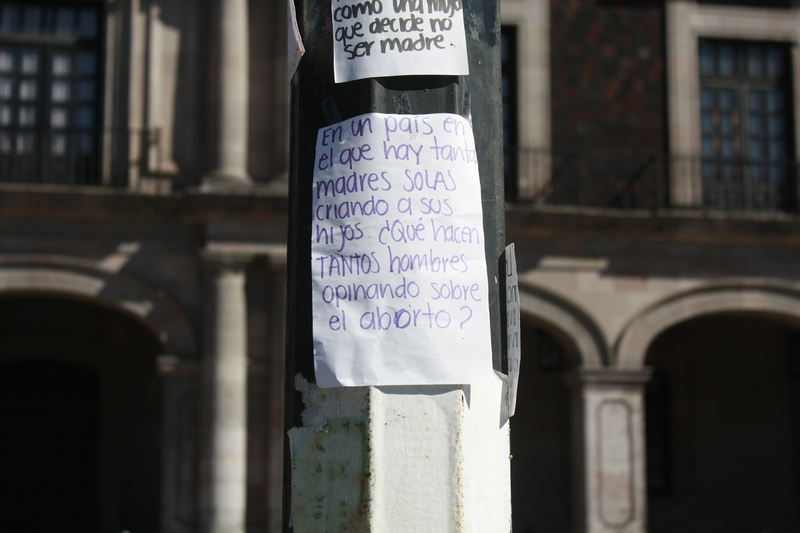 como una
que decide no
ser madre.
En un país en
el que hay tanta
madres SOLAS
criando a sus
hijos ¿Qué hacen
TANTOS hombres
opinando sobre
el aborto?